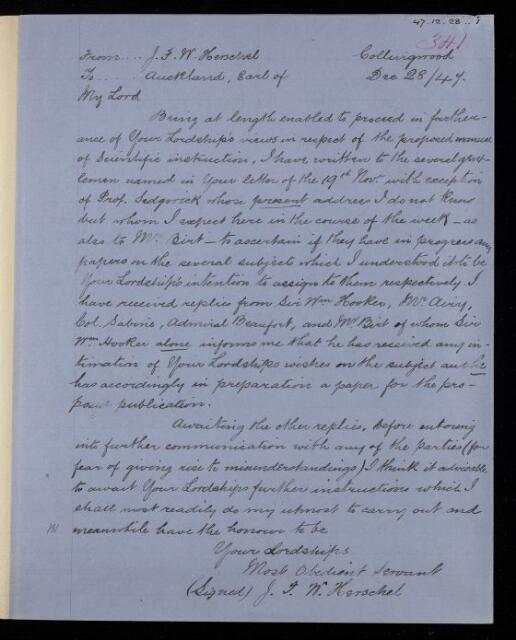 47.12.28..1
341
From.... J. F. W. Herschel Collingwood
To.... Auckland, Earl of Dec 28/47.
My Lord
Being at length enabled to proceed in further-
ance of Your Lordship's views in respect of the proposed manual
of Scientific instruction, I have written to the several gentl-
emen named in Your letter of the 19th Nov. with exception
of Prof. Sedgwick whose present address I do not know
but whom I expect here in the course of the week – as
also to Mr. Birt – to ascertain if they have in progress any
papers on the several subjects which I understood it to be
Your Lordship's intention to assign to them respectively. I
have received replies from Sir Wm Hooker, Mr. Airy,
Col. Sabine, Admiral Beaufort, and Mr Birt of whom Sir
Wm Hooker alone informs me that he has received any in-
timation of Your Lordships wishes on the subject and he
has accordingly in preparation a paper for the pro-
posed publication.
Awaiting the other replies, before entering
into further communication with any of the parties (for
fear of giving rise to misunderstandings) I think it advisable
to await Your Lordships further instructions which I
shall most readily do my utmost to carry out and
meanwhile have the honour to be
Your Lordships
Most Obedient Servant
(Signed) J. F. W. Herschel